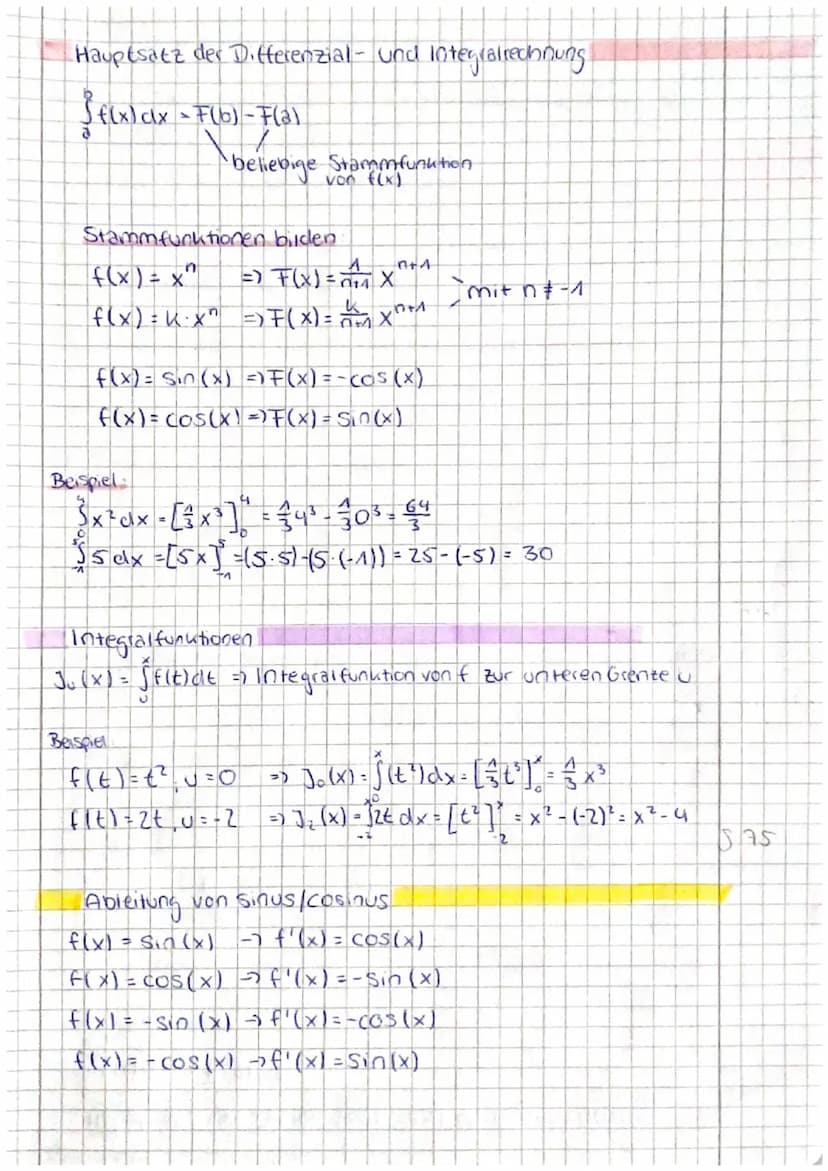 Hauptsatz der Differenzial- und Integralrechnung
∫_a^b f(x) dx = F(b) - F(a)
beliebige Stammfunktion
von f(x)
Stammfunktionen bilden
f(x) = xⁿ => F(x) = 1/(n+1) xⁿ⁺¹
mit n ≠ -1
f(x) = k·xⁿ => F(x) = k/(n+1) xⁿ⁺¹
f(x) = sin(x) => F(x) = -cos(x)
f(x) = cos(x) => F(x) = sin(x)
Beispiel:
∫_0^4 x² dx = [1/3 x³]_0^4 = 1/3 4³ - 1/3 0³ = 64/3
∫_-1^5 5 dx = [5x]_-1^5 = (5·5)-(5·(-1)) = 25 - (-5) = 30
Integralfunktionen
J_u(x) = ∫_u^x f(t) dt => Integralfunktion von f zur unteren Grenze u
Beispiel
f(t) = t², u = 0 => J_0(x) = ∫_0^x (t²) dx = [1/3 t³]_0^x = 1/3 x³
f(t) = 2t, u = -2 => J_2(x) = ∫_-2^x 2t dx = [t²]_-2^x = x² - (-2)² = x² - 4
S 75
Ableitung von sinus/cosinus
f(x) = sin(x) → f'(x) = cos(x)
f(x) = cos(x) → f'(x) = -sin(x)
f(x) = -sin(x) → f'(x) = -cos(x)
f(x) = -cos(x) → f'(x) = sin(x)